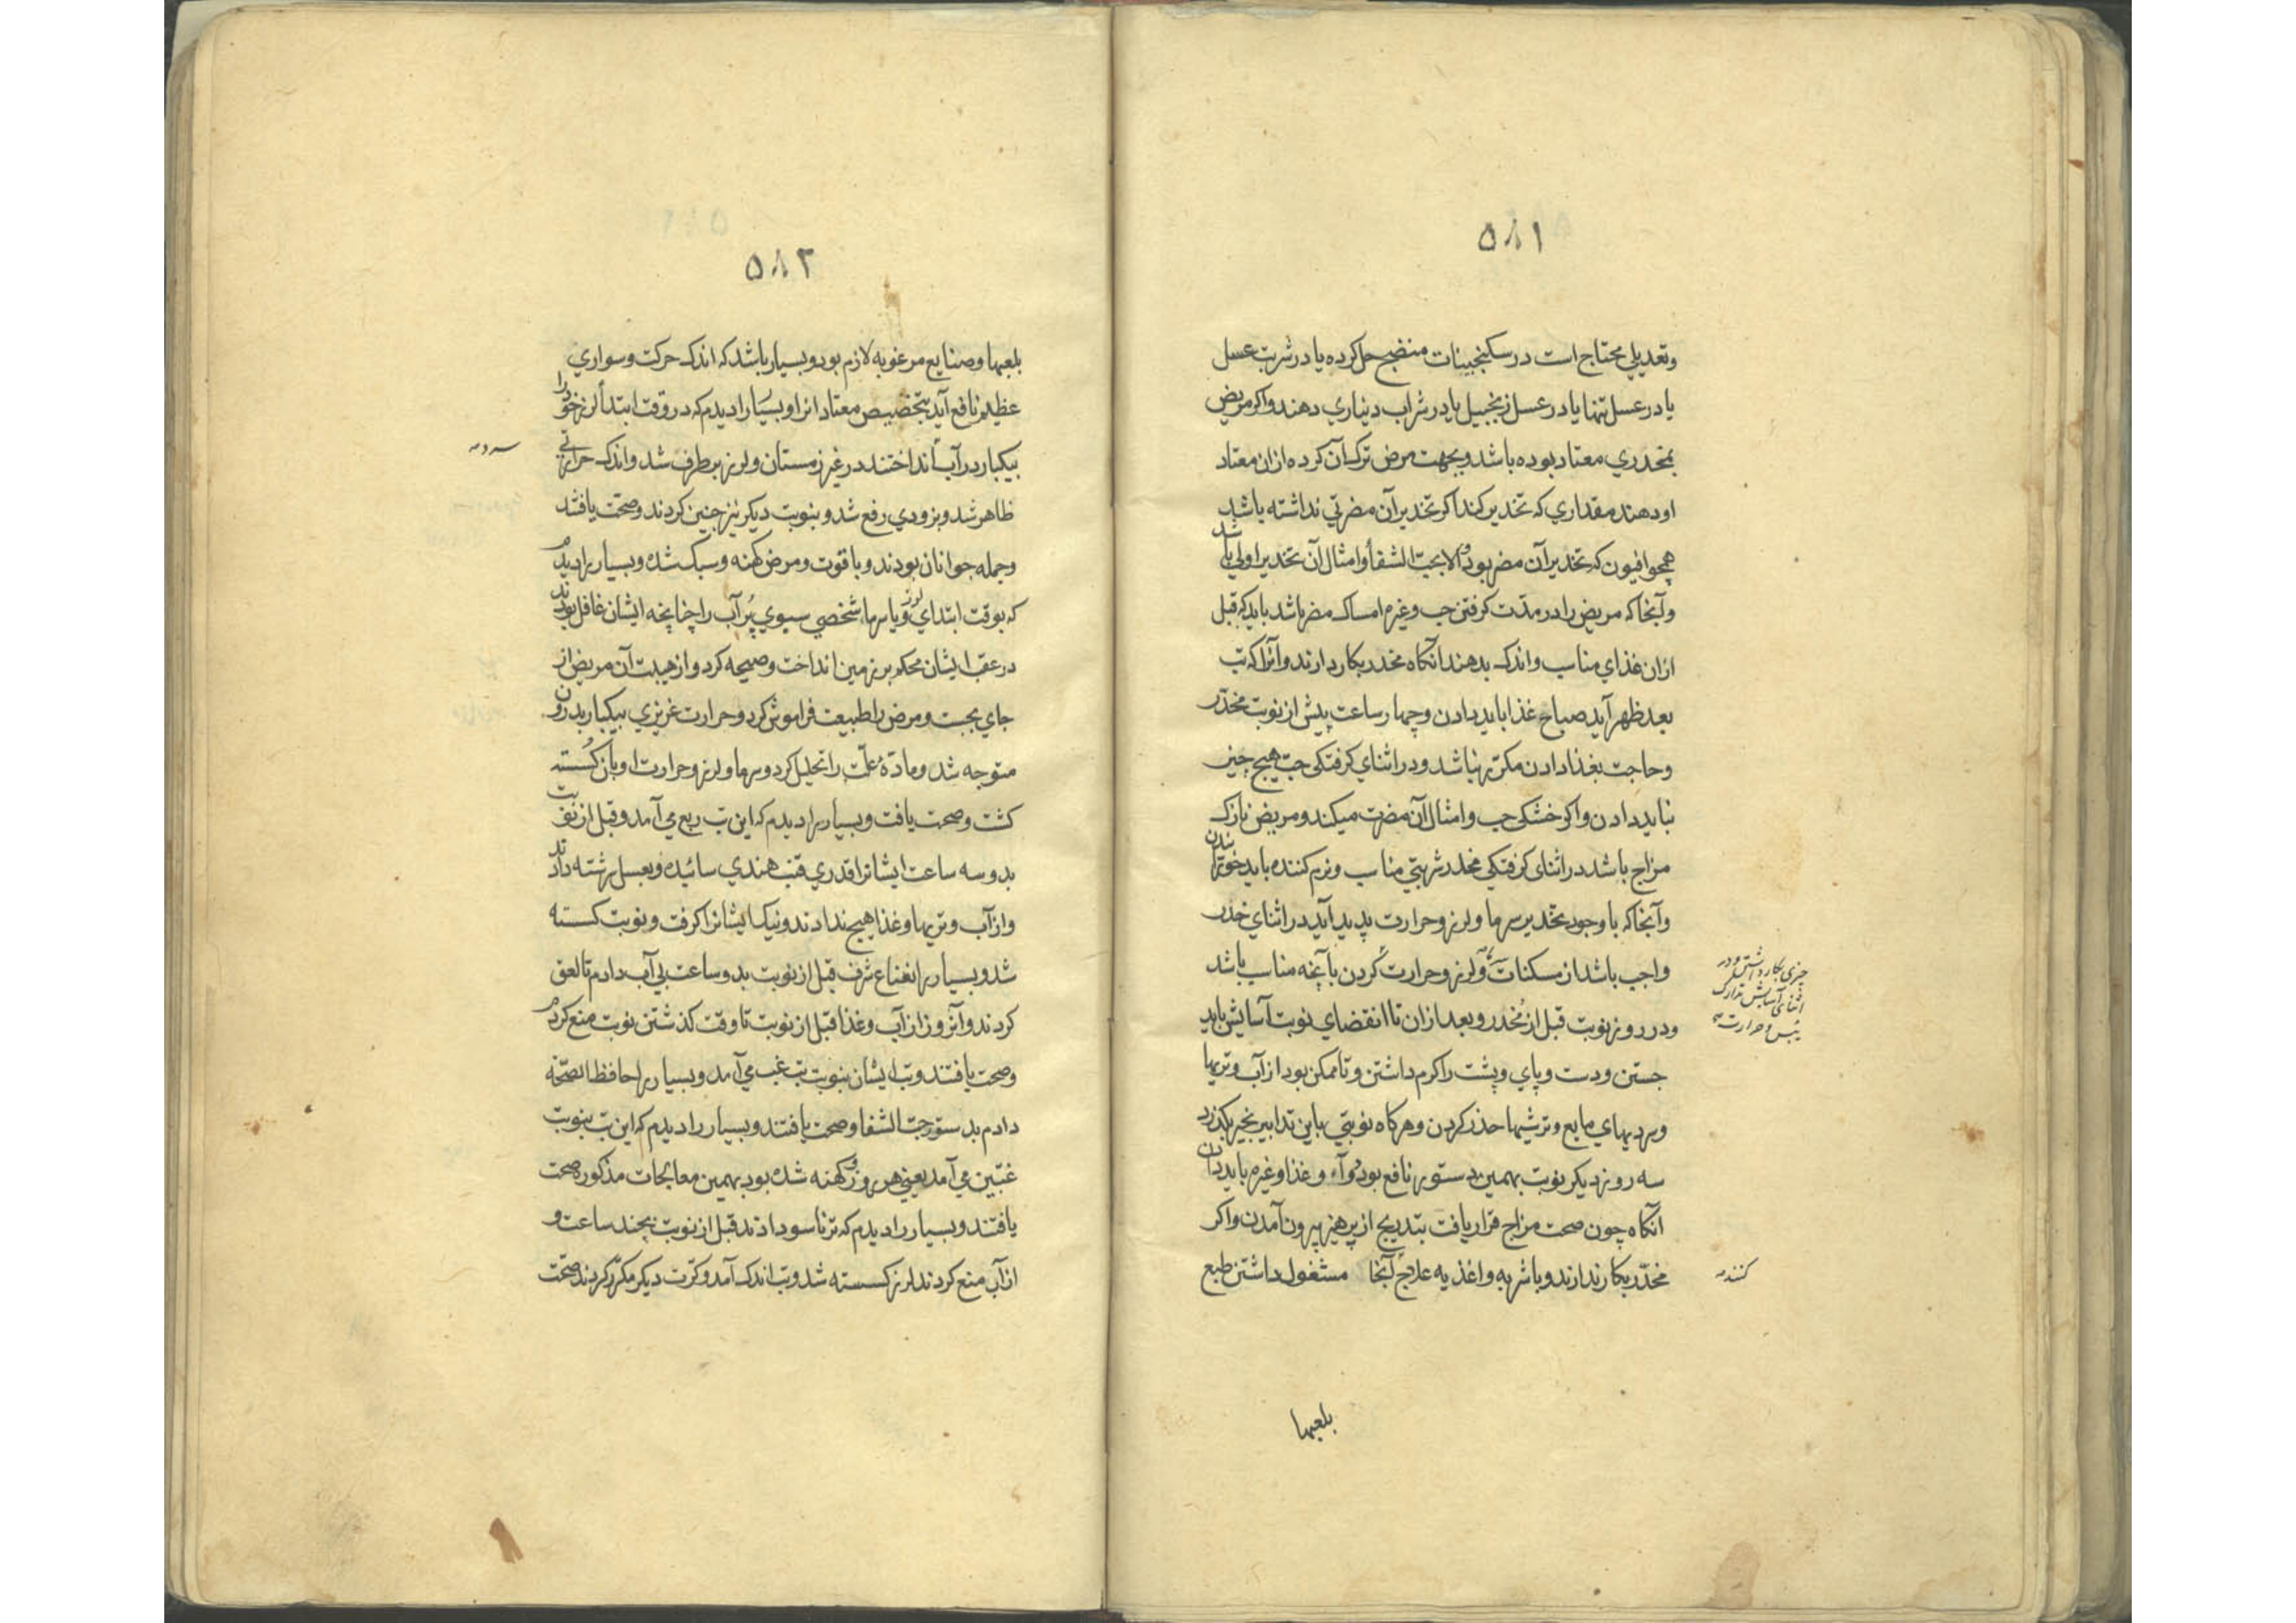 ۵۸۱
وتعدیلي محتاج است در سکنجبینات منضج حل کرده یا در شربت عسل
یا در عسل تنها یا در عسل زنجبیل یا در شراب دیناري دهند واکر مریض
بمخدري معتاد بوده باشد وبجهت مرض ترک آن کرده ازان معتاد
او دهند مقداري که تخدیر کند اکر تخدیر آن مضرتي نداشته باشد
همچو افیون که تخدیر آن مضر بود والا بحب الشفا وامثال آن تخدیر اولي باشد
وآنجا که مریض را در مدت کرفتن حب وغیره امساک مضر باشد باید که قبل
ازان غذاي مناسب واندک بدهند آنکاه مخدر بکار دارند وآنرا که تب
بعد ظهر آید صباح غذا باید دادن وچهار ساعت پیش از نوبت مخدر
وحاجت بغذا دادن مکرر نباشد ودر اثناي کرفتکی حب هیچ چیز
نباید دادن واکر خشکی حب وامثال آن مضرت میکند ومریض نازک
مزاج باشد در اثناي کرفتکي مخدر شربتي مناسب ونرم کننده باید خورانیدن
وآنجا که با وجود تخدیر سرما ولرز وحرارت پدید آید در اثناي خدر
واجب باشد از مسکنات ولرز وحرارت کردن بآنچه مناسب باشد
چیزی بکار داشتن ودر
اثنای آسایش تدارک
یبس وحرارت
ودر روز نوبت قبل از مخدر وبعد ازان تا انقضاي نوبت آسایش باید
جستن ودست وپاي وپشت را کرم داشتن وتا ممکن بود از آب وتریها
وسردیهاي مایع وترشیها حذر کردن وهرکاه نوبتي باین تدابیر بخیر بکذرد
سه روز دیکر نوبت بهمین دستور نافع بود دوآء وغذا وغیره باید دادن
آنکاه چون صحت مزاج قرار یافت بتدریج از پرهیز بیرون آمدن واکر
مخدر بکار ندارند وباشربه واغذیه علاج آنجا مشغول داشتن طبع
کنند
بلعبها
۵۸۲
بلعبها وصنایع مرغوبه لازم بود وبسیار باشد که اندک حرکت وسواري
عظیم نافع آید بتخصیص معتاد انرا وبسیار را دیدم که در وقت ابتداء لرز خود را
بیکبار در آب انداختند در غیر زمستان ولرز برطرف شد واندک حرارتي
ظاهر شد وبزودي رفع شد وبنوبت دیکر نیز چنین کردند وصحت یافتند
وجمله جوانان بودند وبا قوت ومرض کهنه وسبک شده وبسیار را دیدم
که بوقت ابتداي لرز ویا سرما شخصي سبوي پر آب را چنانچه ایشان غافل بودند
در عقب ایشان محکم بر زمین انداخت وصیحه کرد واز هیبت آن مریض از
جاي بجست ومرض را طبیعت فراموش کرد وحرارت غریزي بیکبار بدرون
متوجه شد ومادۀ علت را تحلیل کرد وسرما ولرز وحرارت او بآن کسسته
کشت وصحت یافت وبسیار را دیدم که این تب ربع مي آمد وقبل از نوبت
بدو سه ساعت ایشانرا قدري قنب هندي سائیده وبعسل سرشته دادند
واز آب وتریها وغذا هیچ ندادند ونیک ایشانرا کرفت ونوبت کسسته
شد وبسیار را نعناع شرف قبل از نوبت بدو ساعت بي آب دادم تا لعق
کردند وآنروز از آب وغذا قبل از نوبت تا وقت کذشتن نوبت منع کردم
وصحت یافتند وتب ایشان بنوبت تب غب مي آمد وبسیار را حافظ الصحه
دادم بدستور حب الشفا وصحت یافتند وبسیار را دیدم که این تب بنوبت
غبین مي آمد یعني هر روز وکهنه شده بود بهمین معالجات مذکوره صحت
یافتند وبسیار را دیدم که ترناسو دادند قبل از نوبت بچند ساعت و
از آب منع کردند لرز کسسته شد وتب اندک آمد وکرت دیکر مکرر کردند صحت